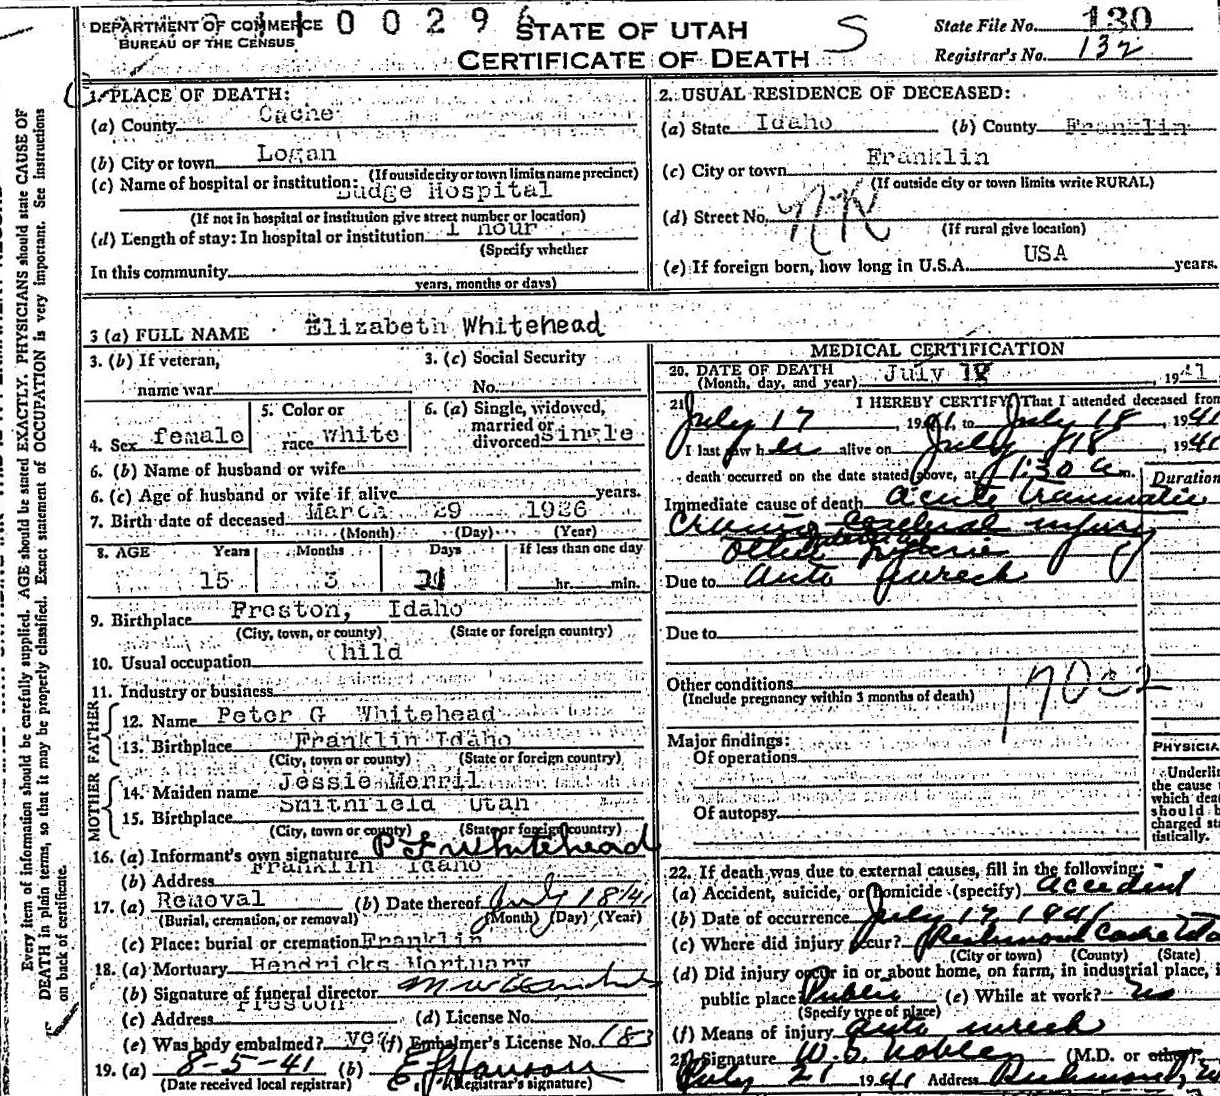 DEPARTMENT OF COMMERCE 0 0 2 9 6 STATE OF UTAH S State File No. 130
BUREAU OF THE CENSUS CERTIFICATE OF DEATH Registrar's No. 132
1. PLACE OF DEATH:
(a) County Cache
(b) City or town Logan
(If outside city or town limits name precinct)
(c) Name of hospital or institution: Budge Hospital
(If not in hospital or institution give street number or location)
(d) Length of stay: In hospital or institution 1 hour
(Specify whether
In this community
years, months or days)
2. USUAL RESIDENCE OF DECEASED:
(a) State Idaho (b) County Franklin
(c) City or town Franklin
(If outside city or town limits write RURAL)
(d) Street No. NR
(If rural give location)
(e) If foreign born, how long in U.S.A. USA years.
3 (a) FULL NAME Elizabeth Whitehead
3. (b) If veteran, 3. (c) Social Security
name war No.
4. Sex female 5. Color or race White 6. (a) Single, widowed, married or divorced Single
6. (b) Name of husband or wife
6. (c) Age of husband or wife if alive years.
7. Birth date of deceased March 29 1926
(Month) (Day) (Year)
8. AGE Years Months Days If less than one day
15 3 hr. min.
9. Birthplace Preston, Idaho
(City, town, or county) (State or foreign country)
10. Usual occupation Child
11. Industry or business
FATHER
12. Name Peter G Whitehead
13. Birthplace Franklin Idaho
(City, town or county) (State or foreign country)
MOTHER
14. Maiden name Jessie Merril
15. Birthplace Smithfield Utah
(City, town or county) (State or foreign country)
16. (a) Informant's own signature P G Whitehead
(b) Address Franklin Idaho
17. (a) Removal (b) Date thereof July 18 '41
(Burial, cremation, or removal) (Month) (Day) (Year)
(c) Place: burial or cremation Franklin
18. (a) Mortuary Hendricks Mortuary
(b) Signature of funeral director
(c) Address Preston (d) License No.
(e) Was body embalmed? yes (f) Embalmer's License No. 183
19. (a) 8-5-41 (b) E J Hanson
(Date received local registrar) (Registrar's signature)
MEDICAL CERTIFICATION
20. DATE OF DEATH
(Month, day, and year) July 18, 1941
21. I HEREBY CERTIFY, That I attended deceased from
July 17, 1941, to July 18, 1941
I last saw her alive on July 18, 1941
death occurred on the date stated above, at 1:30 a m.
Duration
Immediate cause of death acute traumatic
cerebral injury
other
Due to auto wreck
Due to
Other conditions
(Include pregnancy within 3 months of death)
Major findings:
Of operations
Of autopsy
PHYSICIA
Underlin
the cause t
which dea
should b
charged sta
tistically.
22. If death was due to external causes, fill in the following:
(a) Accident, suicide, or homicide (specify) accident
(b) Date of occurrence July 17, 1941
(c) Where did injury occur? Richmond Cache Uta
(City or town) (County) (State)
(d) Did injury occur in or about home, on farm, in industrial place, i
public place? Public (e) While at work? no
(Specify type of place)
(f) Means of injury auto wreck
23. Signature (M.D. or other)
July 21 1941 Address Richmond,
Every item of information should be carefully supplied. AGE should be stated EXACTLY. PHYSICIANS should state CAUSE OF
DEATH in plain terms, so that it may be properly classified. Exact statement of OCCUPATION is very important. See Instructions
on back of certificate.